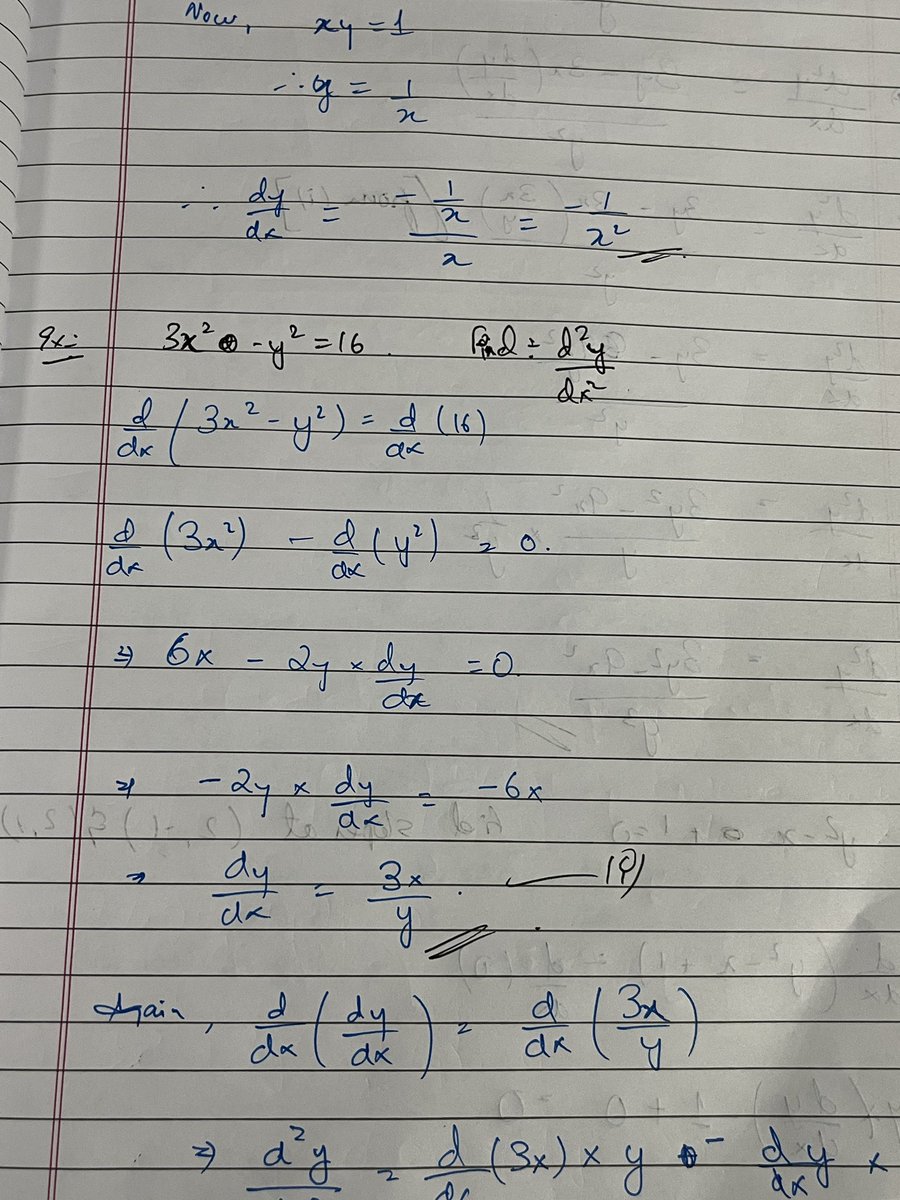 Now, xy = 1
∴ y = 1/x
∴ dy/dx = (- 1/x)/x = -1/x²
Ex:- 3x² - y² = 16 Find : d²y/dx²
d/dx (3x² - y²) = d/dx (16)
d/dx (3x²) - d/dx (y²) = 0.
⇒ 6x - 2y × dy/dx = 0.
⇒ -2y × dy/dx = -6x
⇒ dy/dx = 3x/y . —— (i)
Again, d/dx (dy/dx) = d/dx (3x/y)
⇒ d²y = d/dx (3x) × y - d/dx y ×